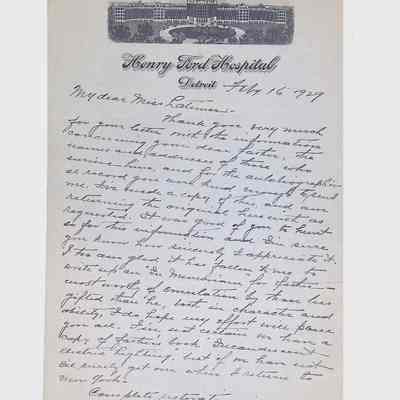 Henry Ford Hospital
Detroit Feb 16 1929
My dear Miss Latimer:-
Thank you very much
for your letter with the information
concerning your dear father, the
names and addresses of those who
survive him, and for the autobiographic-
al record you were kind enough to send
me. I've made a copy of this, and am
returning the original herewith as
requested. It was good of you to hunt
up for this information and I'm sure
you know how sincerely I appreciate it.
I too am glad it has fallen to me to
write up an "In Memoriam" for father -
most worthy of emulation by those less
gifted than he, both in character and
ability. I do hope my effort will please
you all. I'm not certain we have a
copy of father's book "Incandescent
Electric Lighting," but if we have not
I'll surely get one when I return to
New York.
Complete restorat